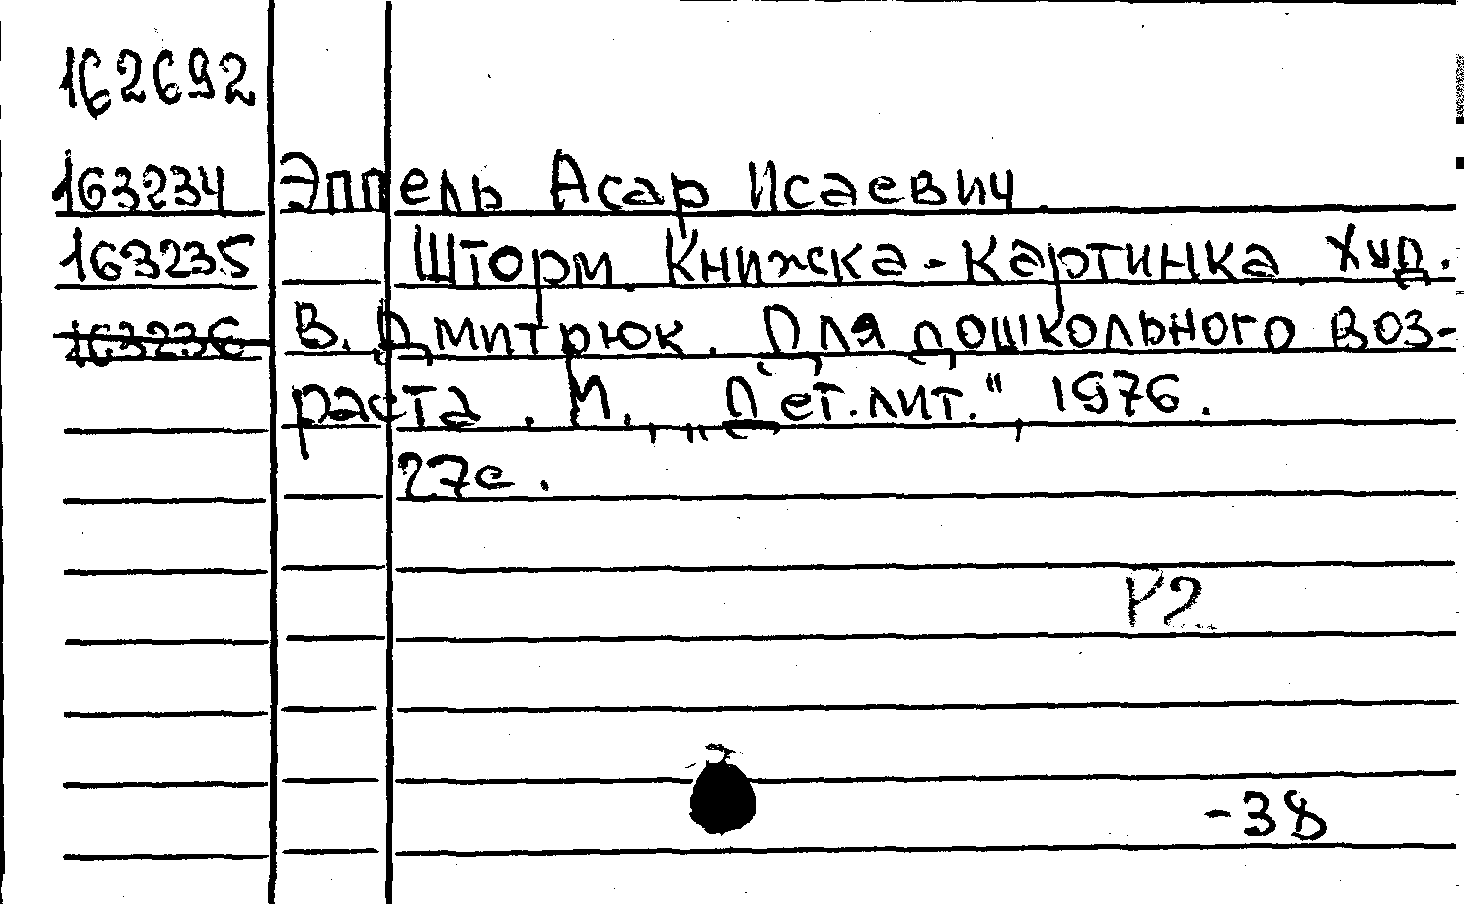 162692
163234 Эппель Асар Исаевич
163235 Шторм. Книжка-картинка. Худ.
163236 В. Дмитрюк. Для дошкольного воз-
раста. М., „Дет.лит.", 1976.
27с.
Р2
-38